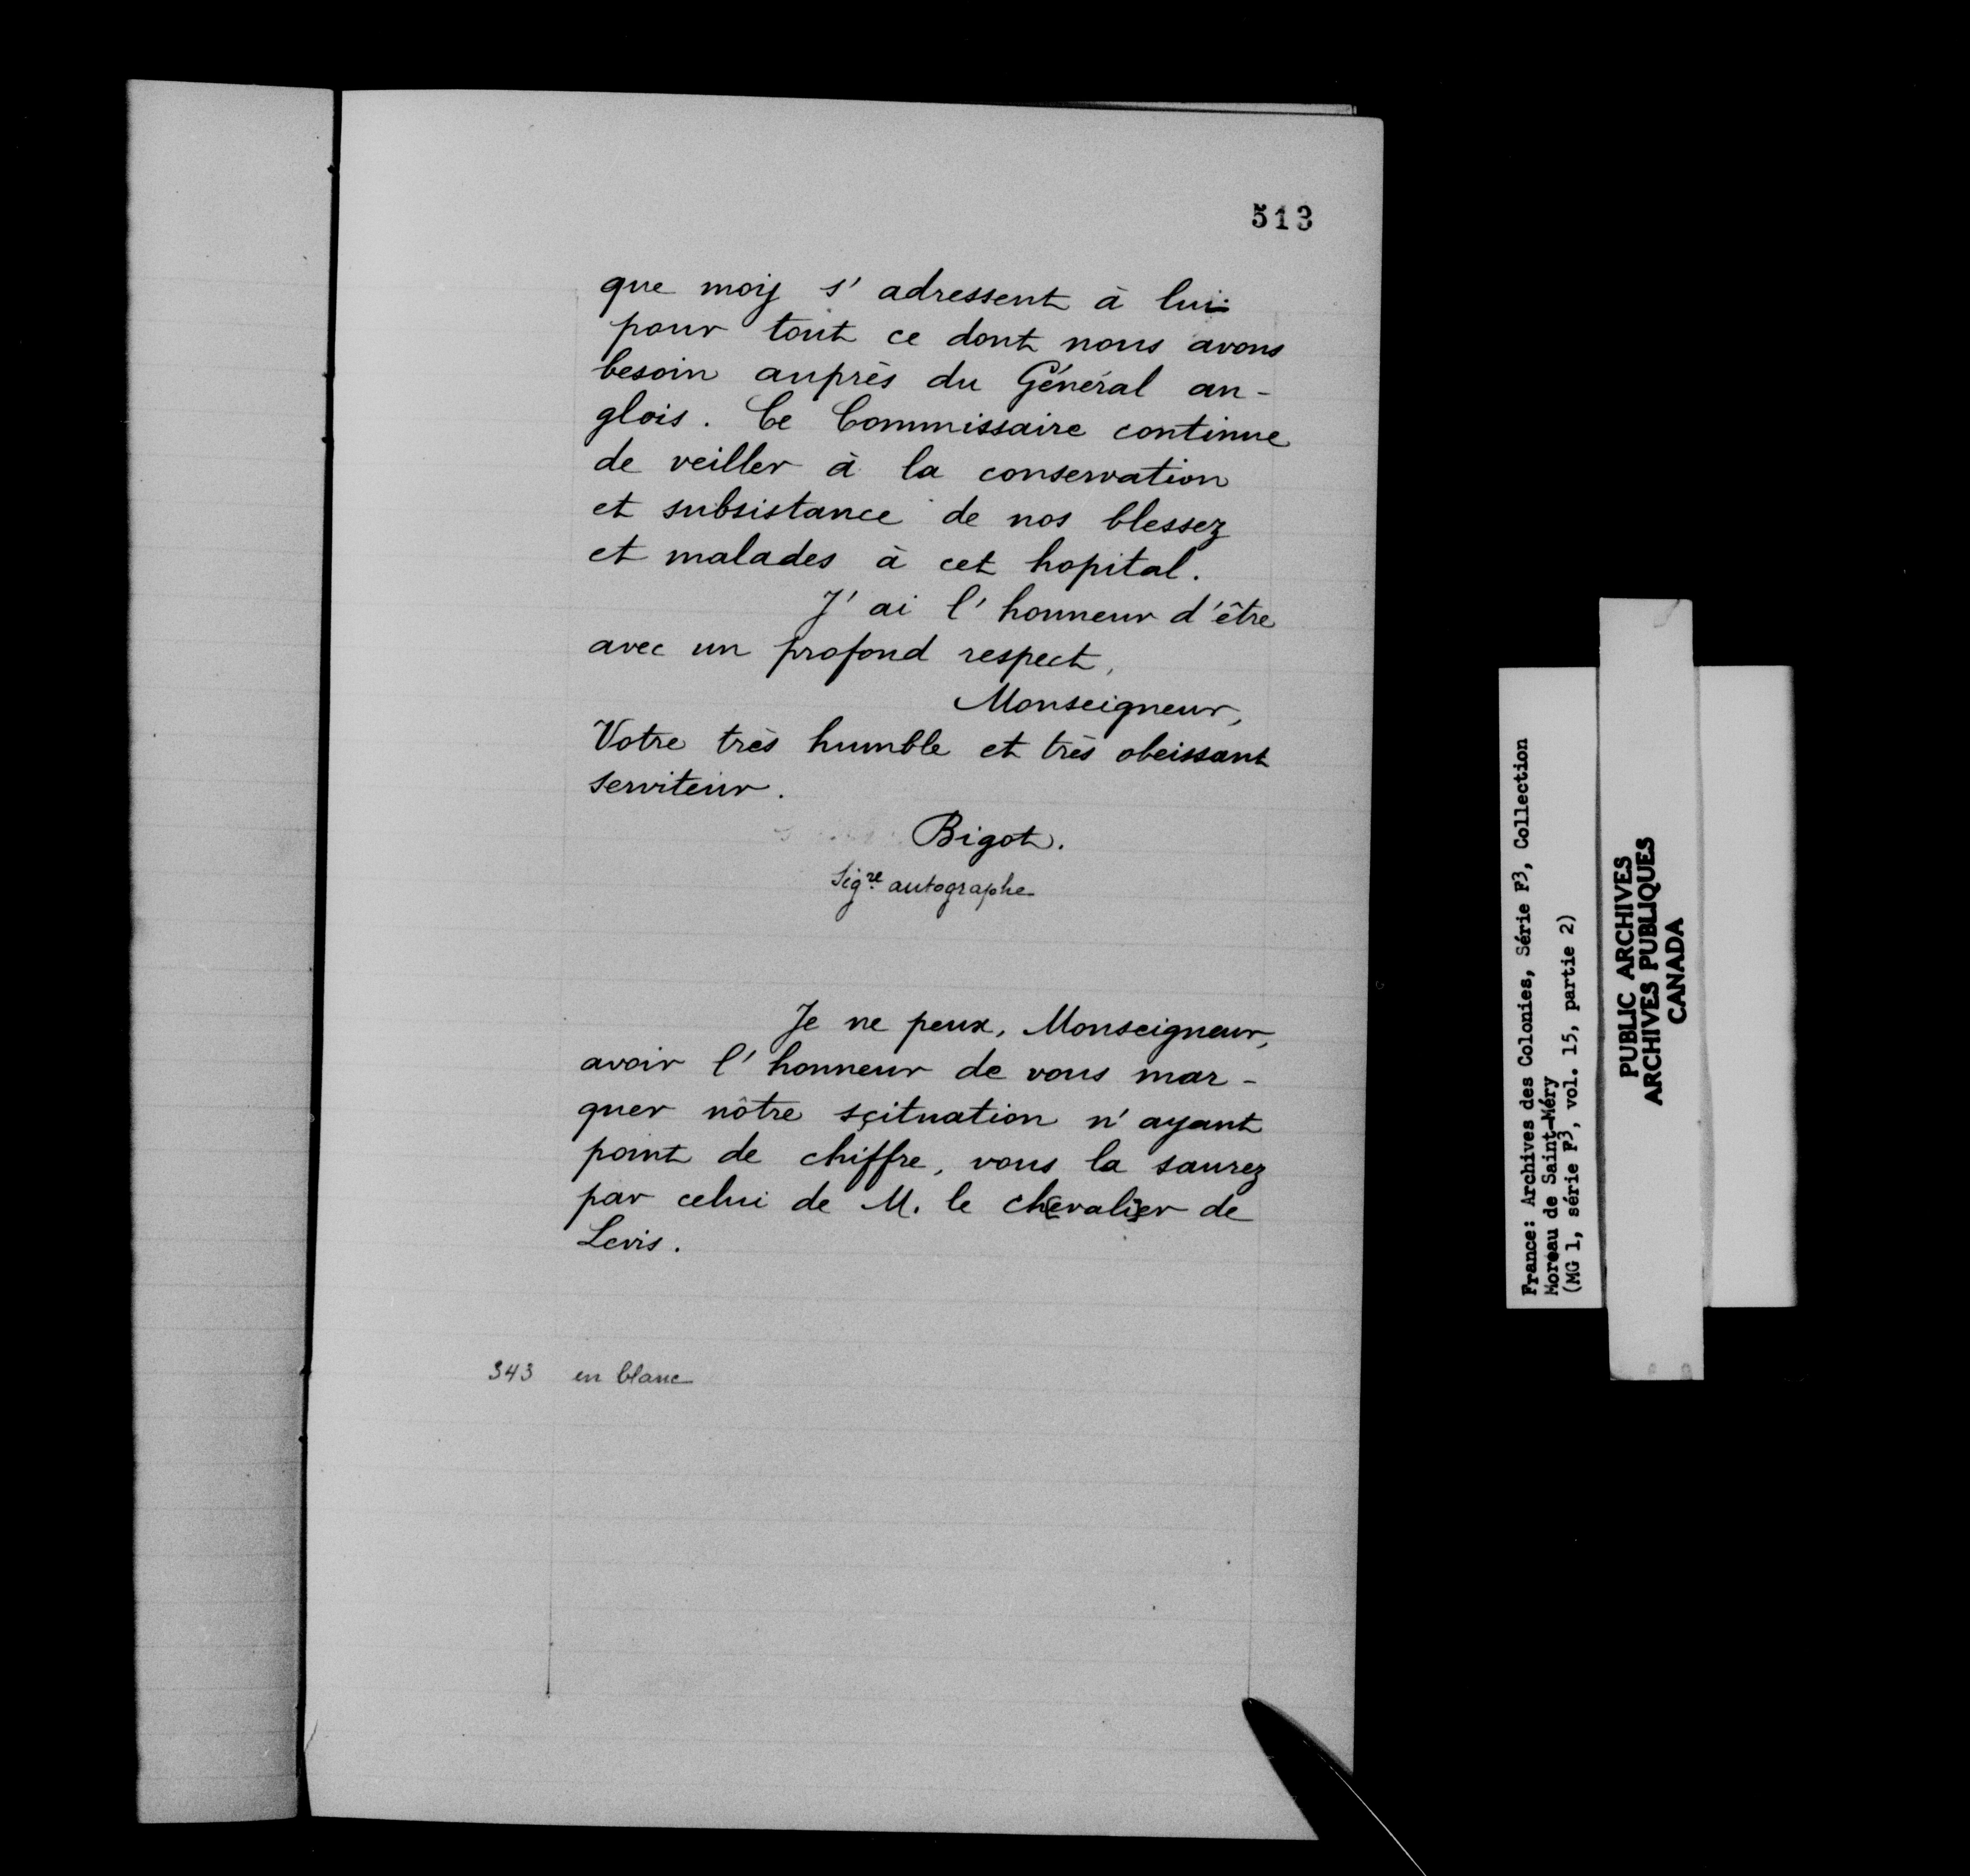 513
que moy s'adressent à lui
pour tout ce dont nous avons
besoin auprès du Général an-
glois. Ce Commissaire continue
de veiller à la conservation
et subsistance de nos blessez
et malades à cet hopital.
J'ai l'honneur d'être
avec un profond respect,
Monseigneur,
Votre très humble et très obeissant
serviteur.
Bigot.
Sigre autographe
Je ne peux, Monseigneur,
avoir l'honneur de vous mar-
quer nôtre sçituation n'ayant
point de chiffre, vous la saurez
par celui de M. le ch[evali]er de
Levis.
343 en blanc
France: Archives des Colonies, Série F3, Collection
Moreau de Saint-Méry
(MG 1, série F3, vol. 15, partie 2)
PUBLIC ARCHIVES
ARCHIVES PUBLIQUES
CANADA